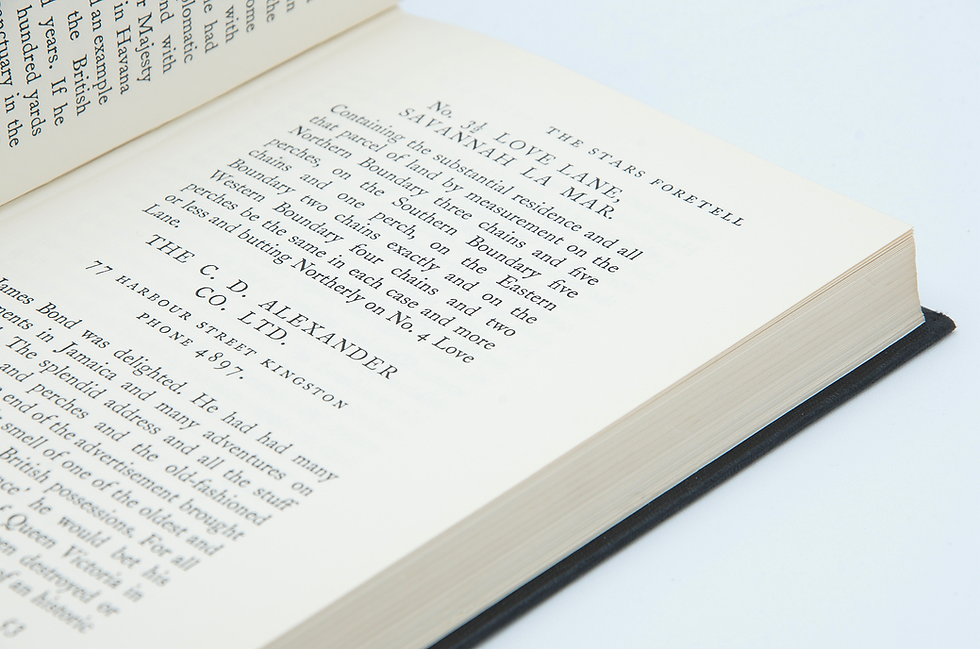 in
the
ome
with
plomatic
e had
nd with
r Majesty
in Havana
an example
the British
years. If he
hundred yards
nctuary in the
THE STARS FORETELL
No. 3½ LOVE LANE,
SAVANNAH LA MAR.
Containing the substantial residence and all
that parcel of land by measurement on the
Northern Boundary three chains and five
perches, on the Southern Boundary five
chains and one perch, on the Eastern
Boundary two chains exactly and on the
Western Boundary four chains and two
perches be the same in each case and more
or less and butting Northerly on No. 4 Love
Lane.
THE C. D. ALEXANDER
CO. LTD.
77 HARBOUR STREET KINGSTON
PHONE 4897.
James Bond was delighted. He had had many
ments in Jamaica and many adventures on
The splendid address and all the stuff
and perches and the old-fashioned
end of the advertisement brought
smell of one of the oldest and
British possessions. For all
nce' he would bet his
f Queen Victoria in
en destroyed or
of an historic
53